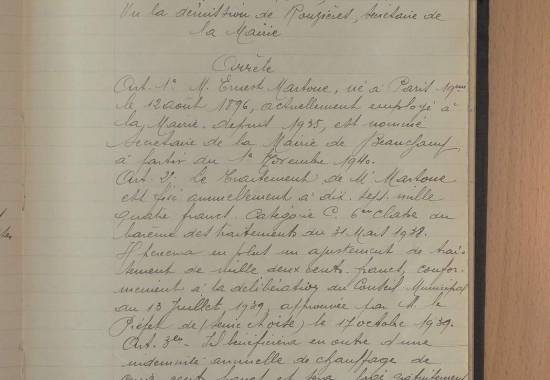 Vu la démission de Rouzières, secrétaire de
la Mairie
Arrête
Art. 1er M. Ernest Martoue, né à Paris 19eme
le, 12 août 1896, actuellement employé à
la Mairie depuis 1935, est nommé
Secrétaire de la Mairie de Beauchamp
à partir du 1er Novembre 1940.
Art. 2. Le Traitement de Mr Martoue
est fixé annuellement à dix sept mille
quatre francs. Catégorie C. 6eme classe du
barème des traitements du 31 Mars 1938.
Il percevra en plus un ajustement de trai-
tement de mille deux cents francs, confor-
mément à la délibération du Conseil Municipal
du 13 Juillet, 1939, approuvée par M. le
Préfet de (Seine & Oise) le 17 octobre 1939.
Art. 3eme Il bénéficiera en outre d'une
indemnité annuelle de chauffage de
cent francs et sera logé gratuitement